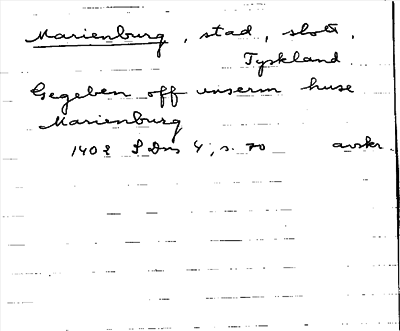 Marienburg, stad, slott,
Tyskland.
Gegeben off unserm huse
Marienburg
1402 SDns 4, s. 70 avskr.